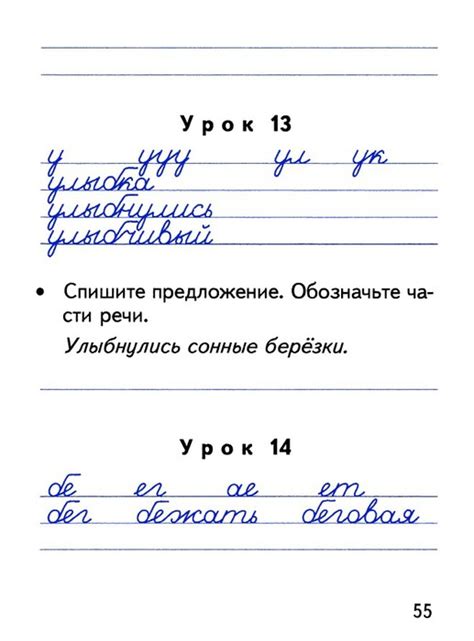 Урок 13
у ууу ул ук
улыбка
улыбнулись
улыбчивый
• Спишите предложение. Обозначьте ча-
сти речи.
Улыбнулись сонные берёзки.
Урок 14
бе ег ае ет
бег бежать беговая
55